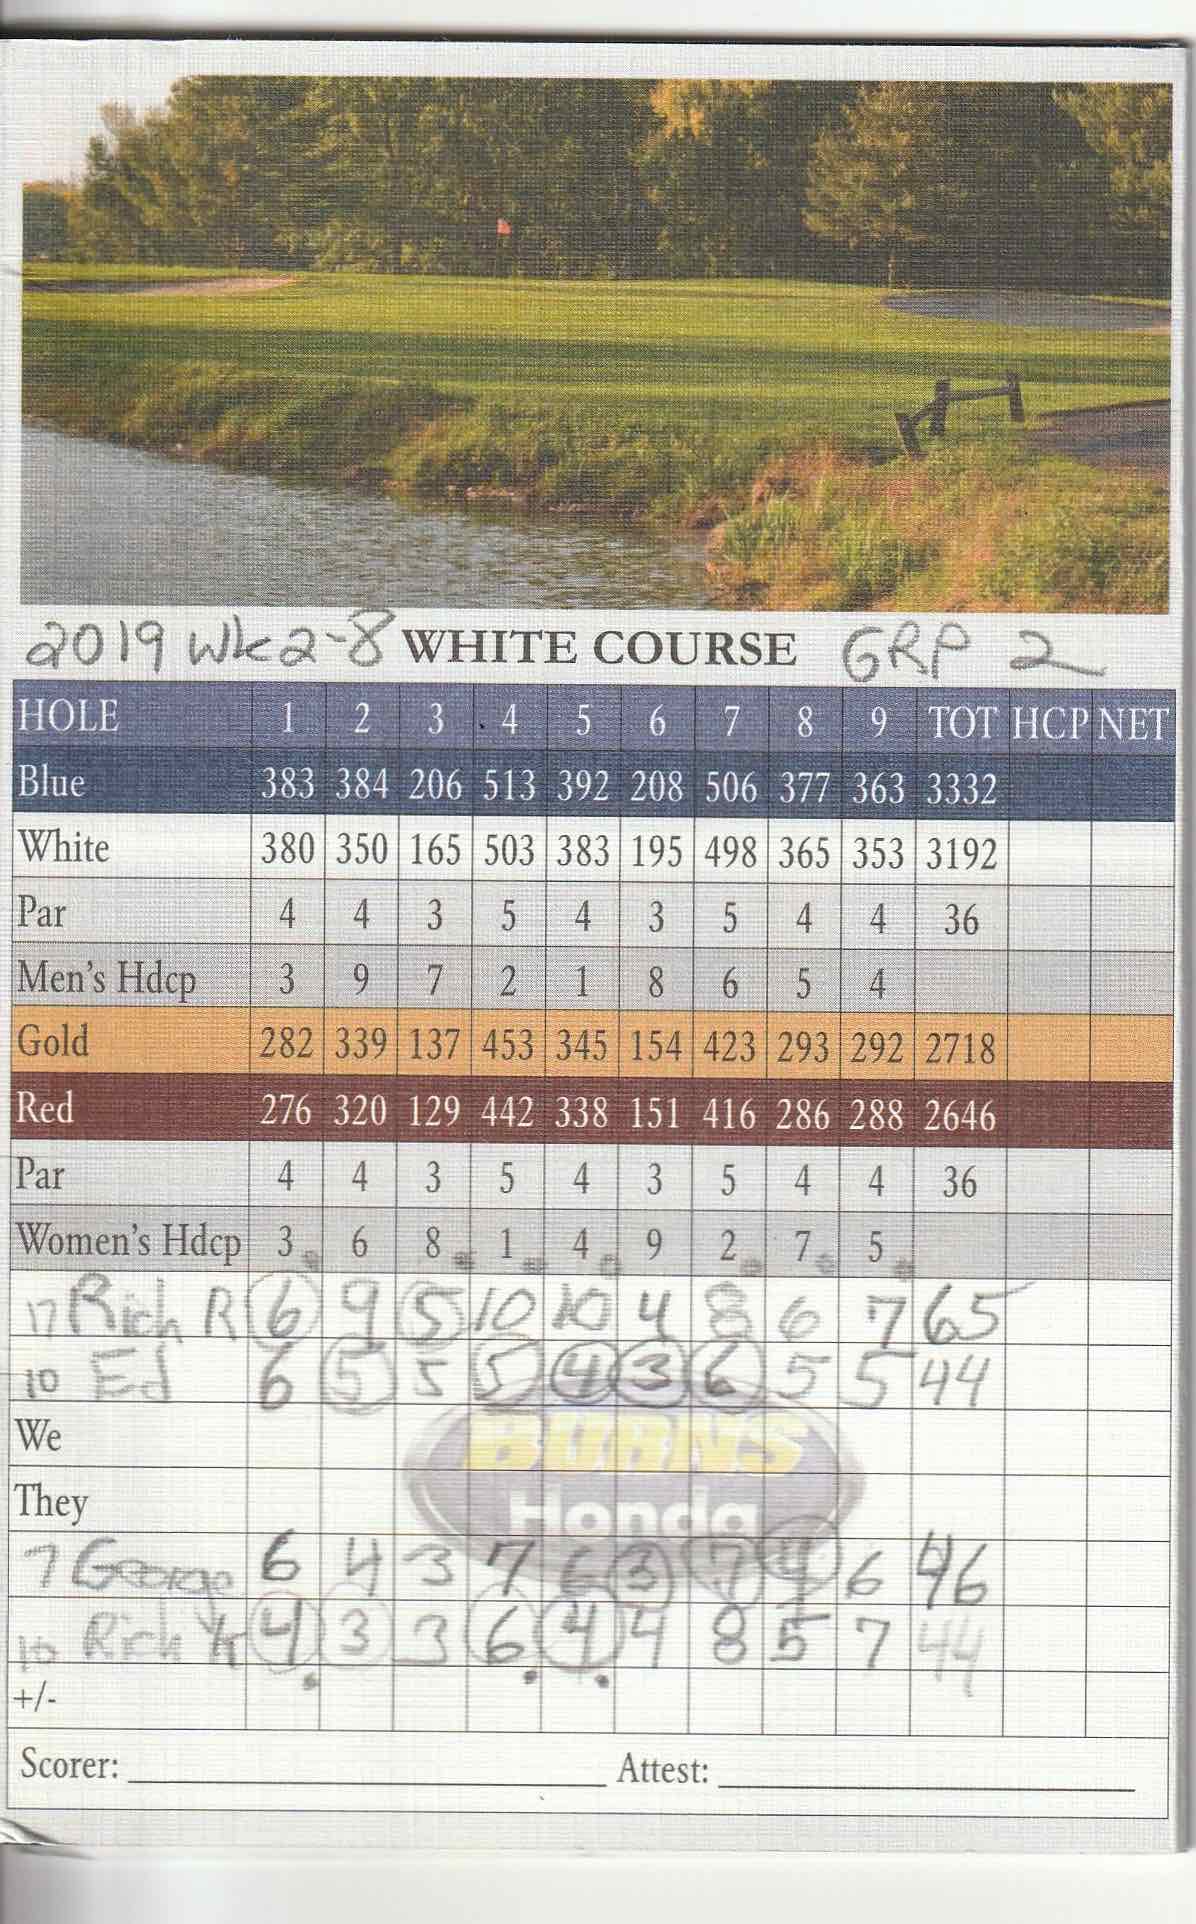 2019 Wk 2-8 WHITE COURSE GRP 2
HOLE 1 2 3 4 5 6 7 8 9 TOT HCP NET
Blue 383 384 206 513 392 208 506 377 363 3332
White 380 350 165 503 383 195 498 365 353 3192
Par 4 4 3 5 4 3 5 4 4 36
Men's Hdcp 3 9 7 2 1 8 6 5 4
Gold 282 339 137 453 345 154 423 293 292 2718
Red 276 320 129 442 338 151 416 286 288 2646
Par 4 4 3 5 4 3 5 4 4 36
Women's Hdcp 3 6 8 1 4 9 2 7 5
17 Rich R 6 9 5 10 10 4 8 6 7 65
10 Ed 6 5 5 5 4 3 6 5 5 44
We
BURNS
They
Honda
7 George 6 4 3 7 6 3 7 4 6 46
10 Rich K 4 3 3 6 4 4 8 5 7 44
+/-
Scorer: Attest: